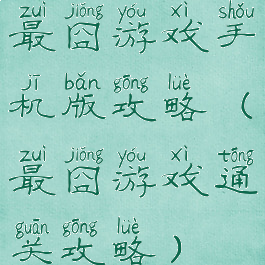 zuì jiǒng yóu xì shǒu
最囧游戏手
jī bǎn gōng lüè
机版攻略（
zuì jiǒng yóu xì tōng
最囧游戏通
guān gōng lüè
关攻略）